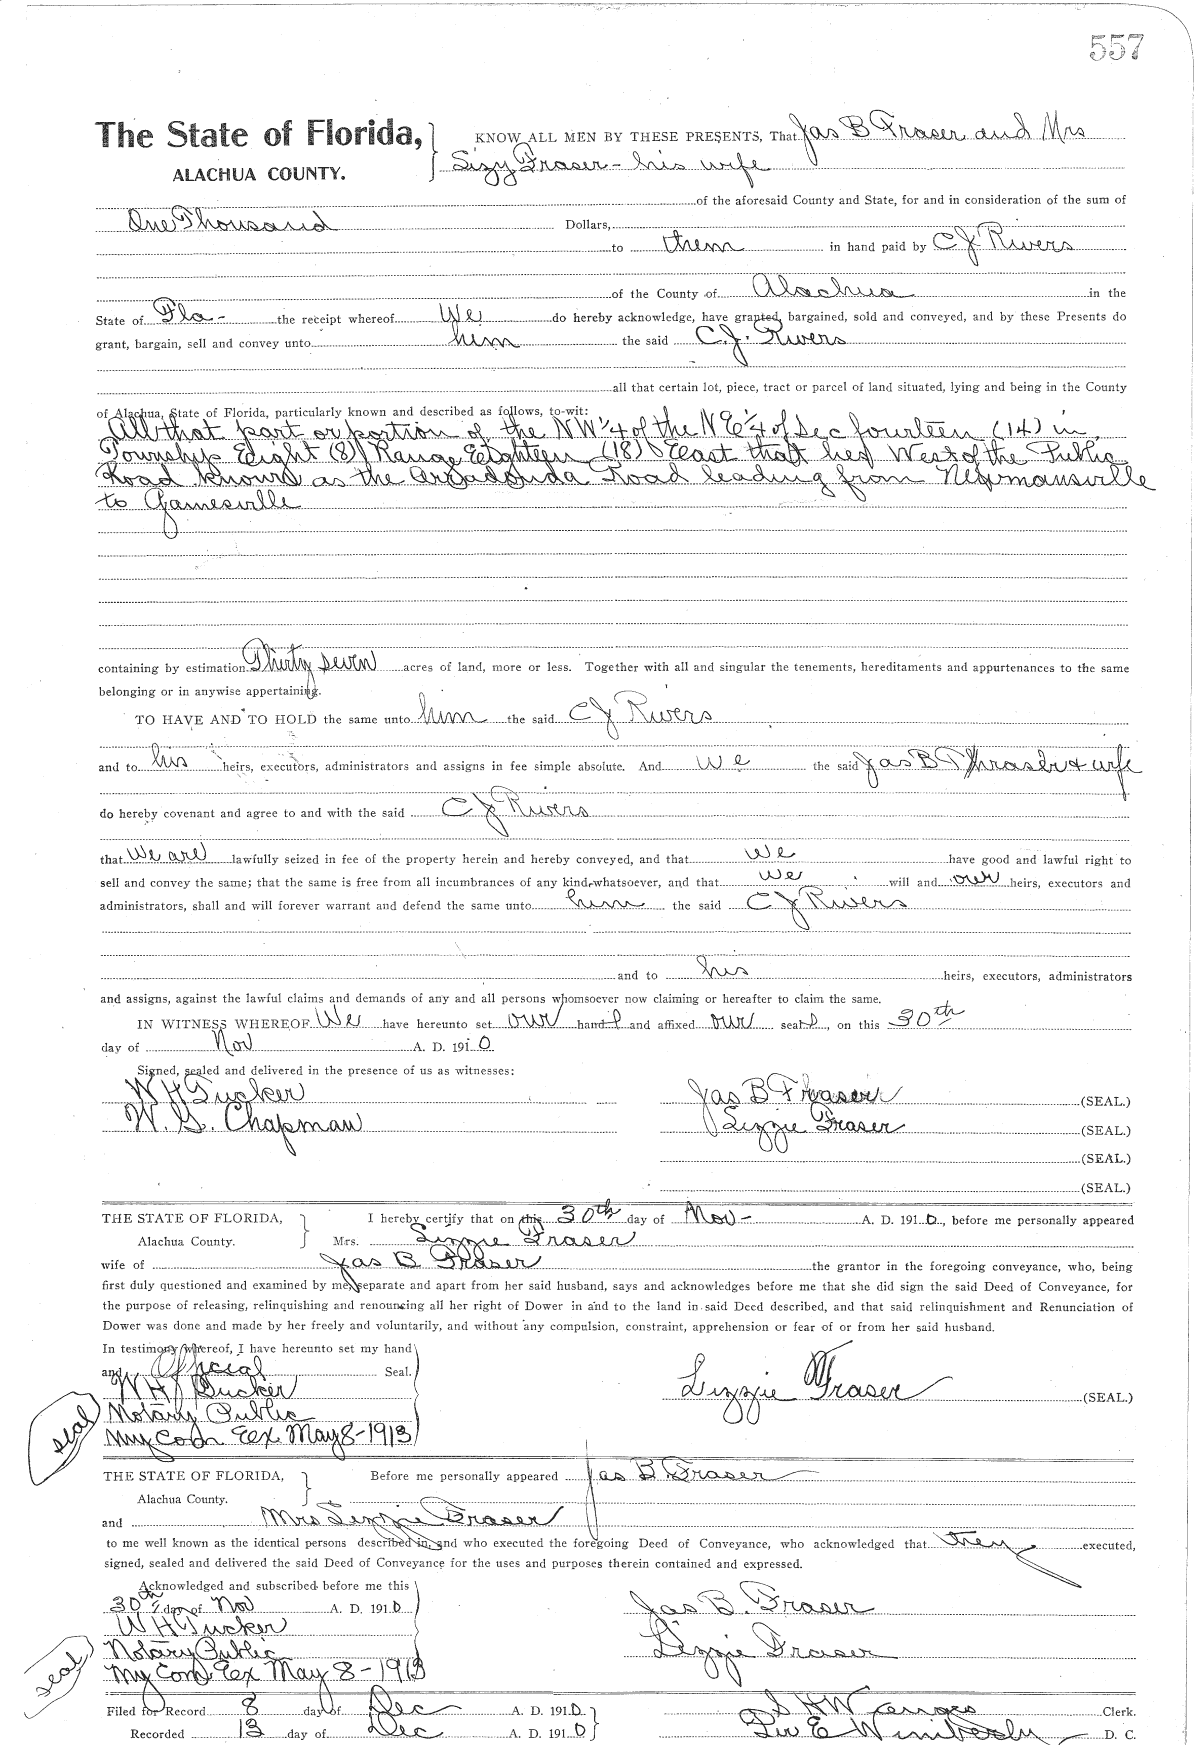 557
The State of Florida, KNOW ALL MEN BY THESE PRESENTS, That Jas B Fraser and Mrs
ALACHUA COUNTY. Lizy Fraser - his wife
of the aforesaid County and State, for and in consideration of the sum of
One Thousand Dollars,
to them in hand paid by C J Rivers
of the County of Alachua in the
State of Fla - the receipt whereof We do hereby acknowledge, have granted, bargained, sold and conveyed, and by these Presents do
grant, bargain, sell and convey unto him the said C.J. Rivers
all that certain lot, piece, tract or parcel of land situated, lying and being in the County
of Alachua, State of Florida, particularly known and described as follows, to-wit:
All that part or portion of the NW 1/4 of the NE 1/4 of Sec fourteen (14) in
Township Eight (8) Range Eighteen (18) East that lies West of the Public
Road known as the Road leading from Newmansville
to Gainesville
containing by estimation Thirty seven acres of land, more or less. Together with all and singular the tenements, hereditaments and appurtenances to the same
belonging or in anywise appertaining.
TO HAVE AND TO HOLD the same unto him the said C J Rivers
and to his heirs, executors, administrators and assigns in fee simple absolute. And we the said Jas B Thrasher & wife
do hereby covenant and agree to and with the said C J Rivers
that we are lawfully seized in fee of the property herein and hereby conveyed, and that we have good and lawful right to
sell and convey the same; that the same is free from all incumbrances of any kind whatsoever, and that we will and our heirs, executors and
administrators, shall and will forever warrant and defend the same unto him the said C J Rivers
and to his heirs, executors, administrators
and assigns, against the lawful claims and demands of any and all persons whomsoever now claiming or hereafter to claim the same.
IN WITNESS WHEREOF We have hereunto set our hand and affixed our seal, on this 30th
day of Nov A. D. 1910
Signed, sealed and delivered in the presence of us as witnesses:
W H Tucker Jas B Fraser (SEAL.)
W. G. Chapman Lizzie Fraser (SEAL.)
(SEAL.)
(SEAL.)
THE STATE OF FLORIDA, I hereby certify that on this 30th day of Nov - A. D. 1910, before me personally appeared
Alachua County. Mrs. Lizzie Fraser
wife of Jas B Fraser the grantor in the foregoing conveyance, who, being
first duly questioned and examined by me, separate and apart from her said husband, says and acknowledges before me that she did sign the said Deed of Conveyance, for
the purpose of releasing, relinquishing and renouncing all her right of Dower in and to the land in said Deed described, and that said relinquishment and Renunciation of
Dower was done and made by her freely and voluntarily, and without any compulsion, constraint, apprehension or fear of or from her said husband.
In testimony whereof, I have hereunto set my hand
and Official Seal.
W H Tucker Lizzie Fraser (SEAL.)
Notary Public
seal My Com Eex May 8-1913
THE STATE OF FLORIDA, Before me personally appeared Jas B Fraser
Alachua County.
and Mrs Lizzie Fraser
to me well known as the identical persons described in, and who executed the foregoing Deed of Conveyance, who acknowledged that they executed,
signed, sealed and delivered the said Deed of Conveyance for the uses and purposes therein contained and expressed.
Acknowledged and subscribed before me this
30th day of Nov A. D. 1910 Jas B. Fraser
W H Tucker
Notary Public Lizzie Fraser
seal My Com Eex May 8-1913
Filed for Record 8 day of Dec A. D. 1910 S H Wienges Clerk.
Recorded 13 day of Dec A. D. 1910 Per E Wimberly D. C.